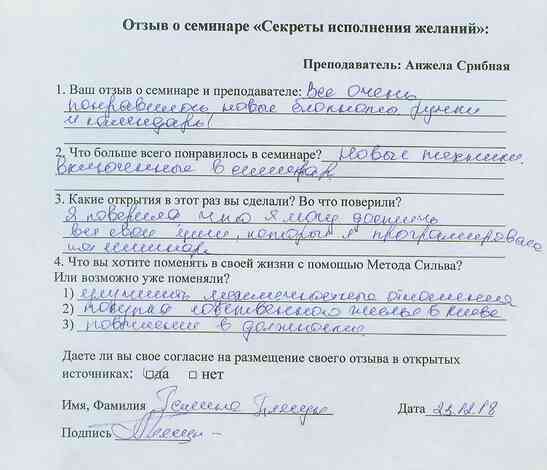 Отзыв о семинаре «Секреты исполнения желаний»:
Преподаватель: Анжела Срибная
1. Ваш отзыв о семинаре и преподавателе: Все очень
понравилось новые блокноты ручки
и календары!
2. Что больше всего понравилось в семинаре? Новые техники
включенные в семинар
3. Какие открытия в этот раз вы сделали? Во что поверили?
Я поверила что я могу достичь
все свои цели, которые я программировала
на семинаре.
4. Что вы хотите поменять в своей жизни с помощью Метода Сильва?
Или возможно уже поменяли?
1) улучшить отношения
2) покупка собственного жилья в Киеве
3) повышение в должности
Даете ли вы свое согласие на размещение своего отзыва в открытых
источниках: □да □ нет
Имя, Фамилия Дата 23.12.18
Подпись